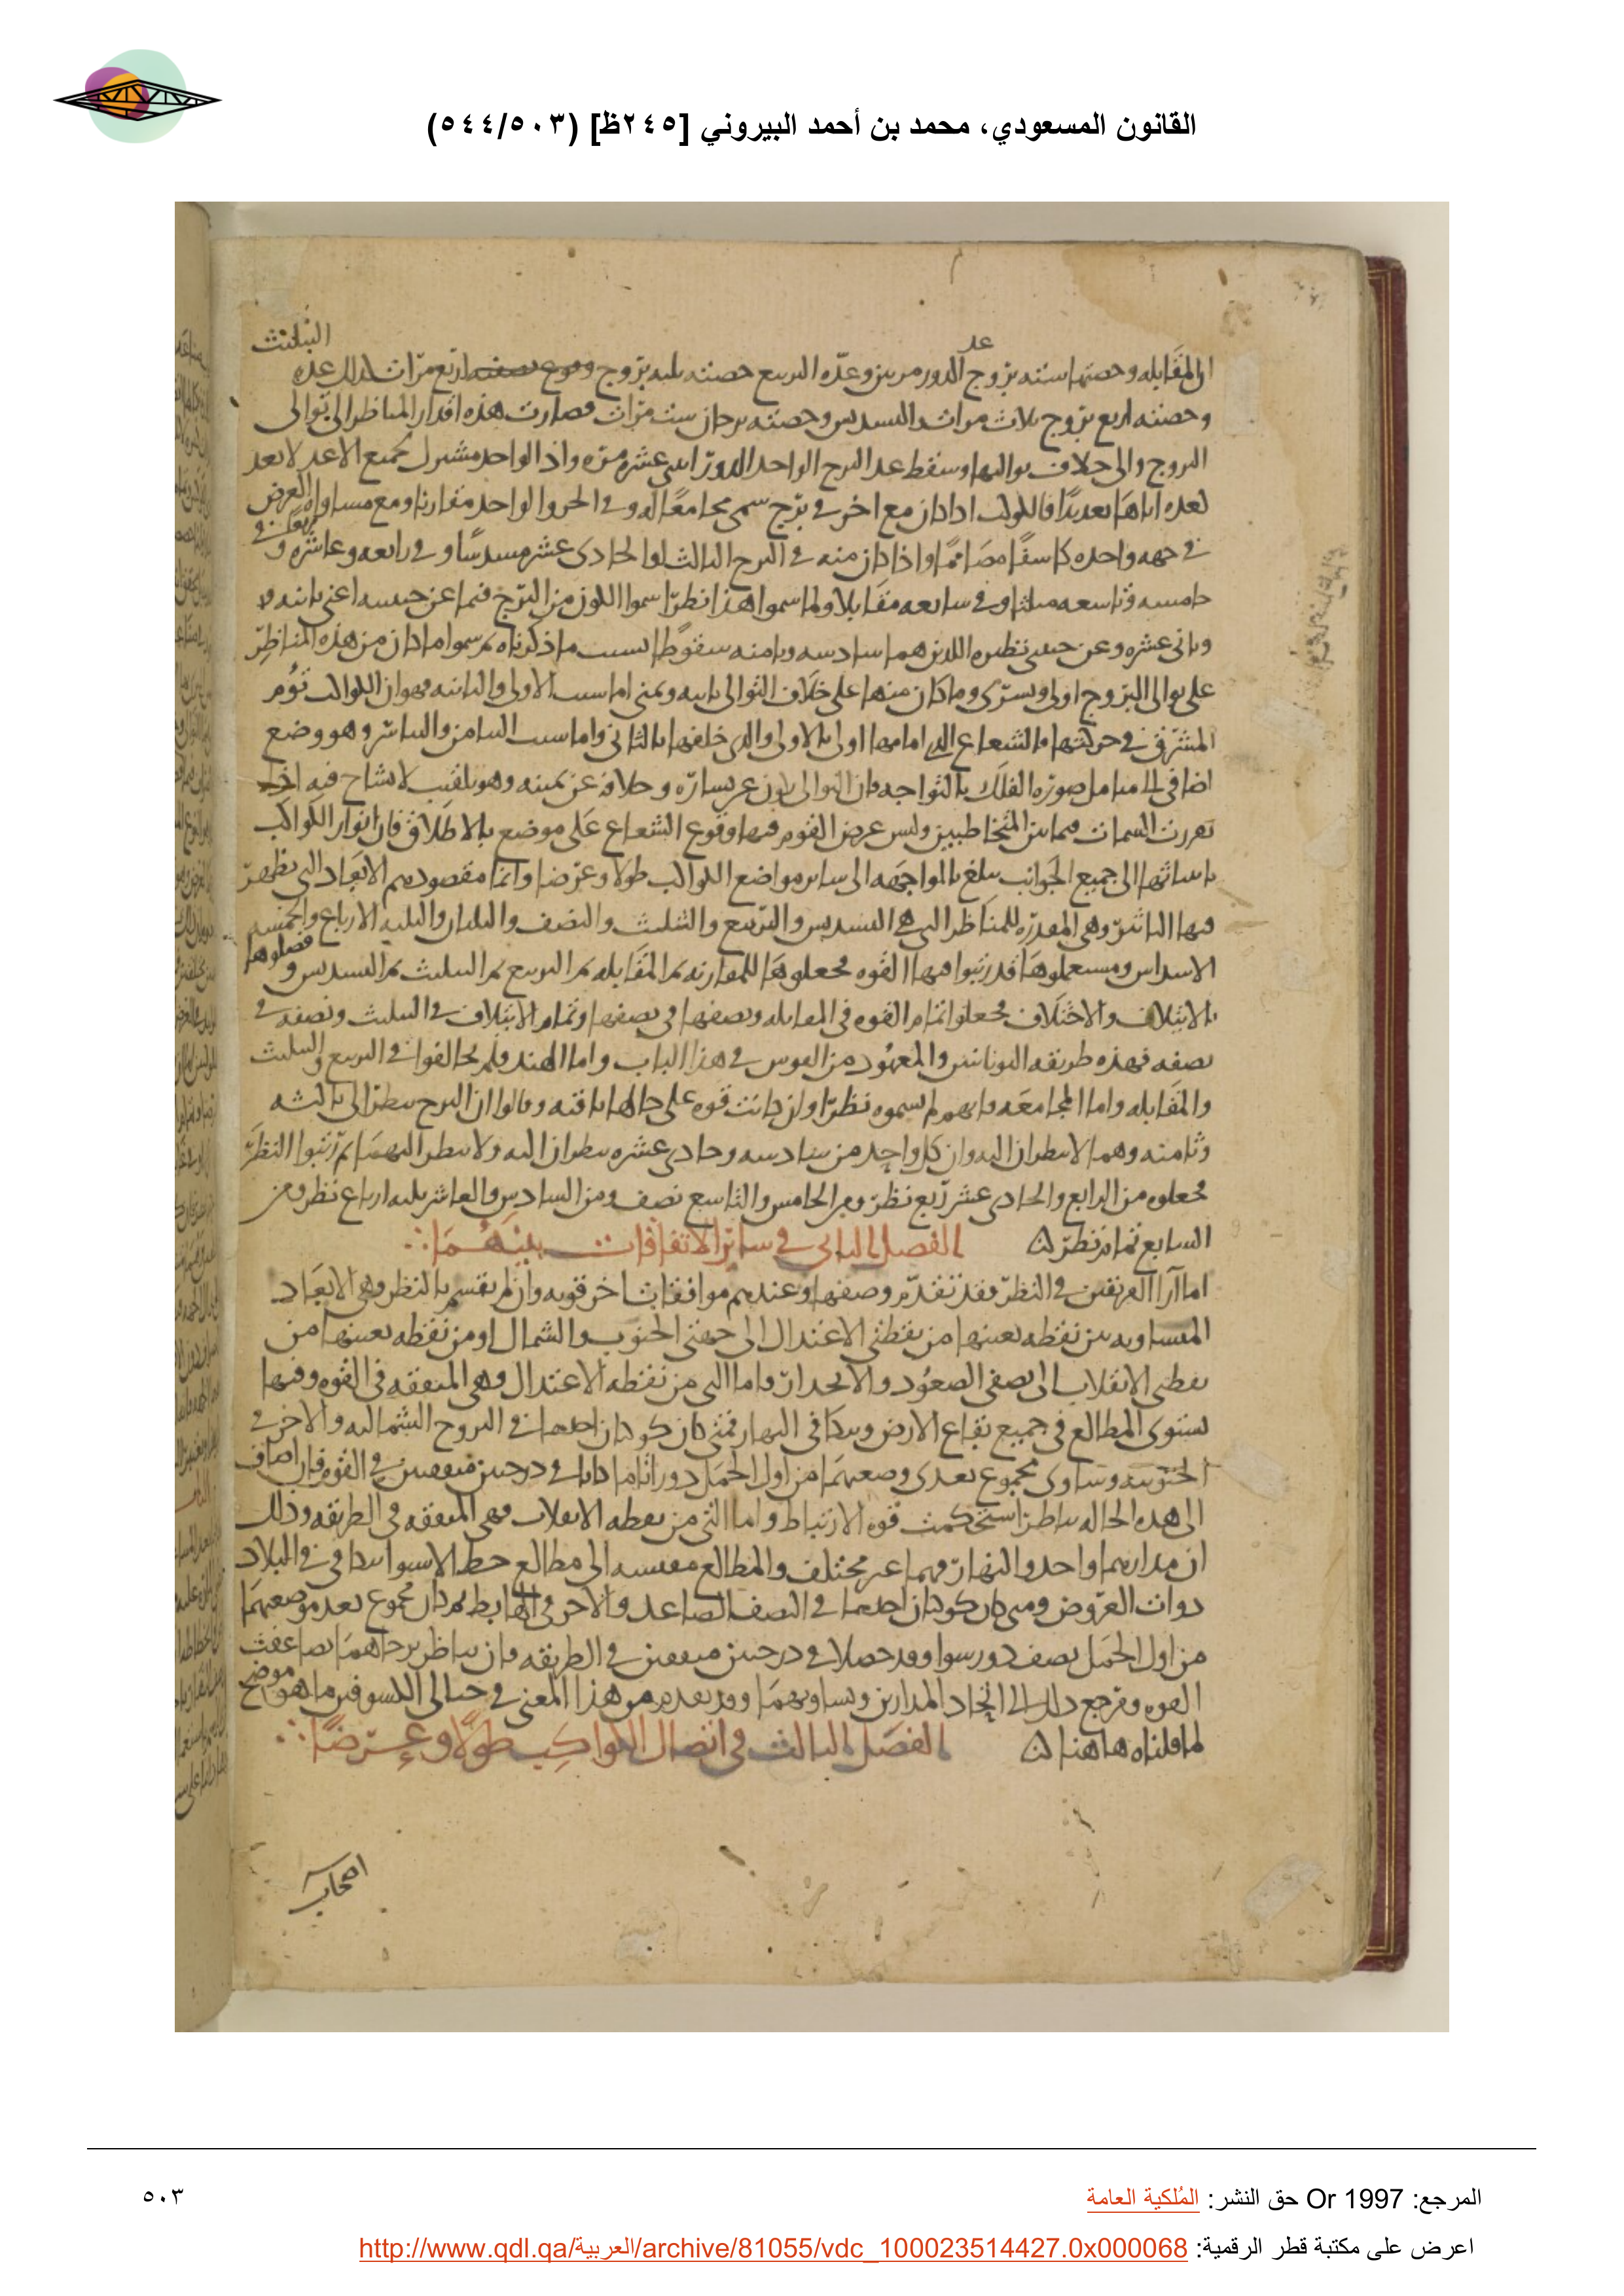 القانون المسعودي، محمد بن أحمد البيروني [٢٤٥ظ] (٥٠٣/٥٤٤)
التثليث
عد
او المقابله وحصتها سته بروج الدور مرتين وعدّه التربيع حصته ثلثه بروج اربع مرّات وعده
وحصته اربع بروج ثلاث مرات والتسديس وحصته برجان ست مرات فصارت هذه اقدار المناظر الى توالى
البروج والى خلاف تواليها وسقط عد البرج الواحد الدور اثنى عشره مرّه واذ الواحد مشترك لجميع الاعداد لا يعد
لعده اياها تعديدًا فالكوكب اذا كان مع اخر فى برج سمى مجامعًا له وفى الجزو الواحد مقارنا ومع مساواه العرض
فى جهه واحده كاسفًا مضامًا واذا كان منه فى البرج الثالث او الحادى عشر مسدسًا وفى رابعه وعاشره مربعًا وفى
خامسه وتاسعه مثلثا وفى سابعه مقابلا ولما سموا هذا نظرًا سموا الكون من البرج فيما عن جنبيه اعنى ثانيه
وثانى عشره وعن جنبتى نظيره اللذين هما سادسه وثامنه سقوطًا لسبب ما ذكرناه ثم سموا ما كان من هذه المناظر
على توالى البروج اولى ويسرى وما كان منها على خلاف التوالى ثانيه ويمنى اما سبب الاولى والثانيه فهو ان الكواكب تؤم
المشرق فى حركتها فالشعاع الذى امامها اولى بالاولى والذى خلفها بالثانى واما سبب التيامن والتياسر وهو وضع
اضافى الى متامل صوره الفلك بالتواجه فان التوالى يكون عن يساره وخلافه عن يمينه وهو تلقيب لا يشاح فيه اذا
تقررت السمات فيما بين المتخاطبين وليس غرض القوم فيها وقوع الشعاع على موضع بالاطلاق فان انوار الكواكب
باسائها الى جميع الجوانب يبلغ بالمواجهه الى ساير مواضع الكواكب طولا وعرضا وانما مقصودهم الابعاد التى يظهر
فيها التاثير وهى المقدره للمناظر التى هى التسديس والتربيع والتثليث والنصف والثلثان والثلثه الارباع والخمسه
الاسداس ومستعملوها قد رتبوا فيها القوه فجعلوها للمقارنه ثم المقابله ثم التربيع ثم التثليث ثم التسديس وفصلوها
بالايتلاف والاختلاف فجعلوا تمام القوه فى المقابله ونصفها فى نصفها وتمام الايتلاف فى التثليث ونصفه فى
نصفه فهذه طريقه اليونانيين والمعهود من الفرس فى هذا الباب واما الهند فلم يخالفوا فى التربيع والتثليث
والمقابله واما المجامعه فانهم لم يسموه نظرًا وان كانت قوه على حالها باقيه وقالوا ان البرج ينظر الى ثالثه
وثامنه وهما لا ينظران اليه وان كل واحد من سادسه وحادى عشره ينظران اليه ولا ينظر اليهما ثم رتبوا النظر
فجعلوه من الرابع والحادى عشر ربع نظر ومن الخامس والتاسع نصف ومن السادس والعاشر ثلثه ارباع نظر ومن
السابع تمام نظر الفصل الثانى فى سائر الاتفاقات بينهما
اما آرا الفريقين فى النظر فقد تقدم وصفها وعندهم موافقات اخر قويه وان لم يقسم بالنظر وهى الابعاد
المتساويه من نقطه بعينها من نقطتى الاعتدال الى جهتى الجنوب والشمال او من نقطه بعينها من
نقطتى الانقلاب الى نصفى الصعود والانحدار واما التى من نقطه الاعتدال وهى المتفقه فى القوه وفيها
يستوى المطالع فى جميع بقاع الارض ويتكافى النهار فمتى كان كوكبان احدهما فى البروج الشماليه والاخر فى
الجنوبيه وساوى مجموع بعدى وضعيهما من اول الحمل دورا تاما كانا فى درجتين متفقتين فى القوه فان اضاف
الى هذه الحاله تناظرا استحكمت قوه الارتباط واما التى من نقطه الانقلاب فهى المتفقه فى الطريقه وذلك
ان مداريهما واحد والنهار فيهما غير مختلف والمطالع مقيسه الى مطالع خط الاستوا تتكافى فى البلاد
ذوات العروض ومتى كان كوكبان احدهما فى النصف الصاعد والاخر فى الهابط ثم كان مجموع بعد موضعيهما
من اول الحمل نصف دور سوا وقد حصلا فى درجتين متفقتين فى الطريقه فان تناظر برجاهما تضاعفت
القوه ومرجع ذلك الى اتحاد المدارين وتساويهما وقد تقدم من هذا المعنى فى حالى الكسوفين ما هو موضح
لما قلناه هاهنا الفصل الثالث فى اتصال الكواكب طولًا وعرضًا
اصحاب
المرجع: Or 1997 حق النشر: المُلكية العامة
٥٠٣
اعرض على مكتبة قطر الرقمية: http://www.qdl.qa/العربية/archive/81055/vdc_100023514427.0x000068